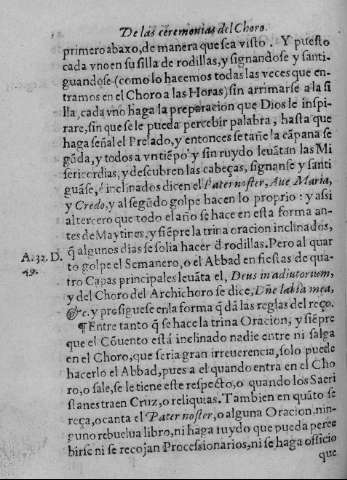 De las ceremonias del Choro.
primero abaxo, de manera que sea visto. Y puesto
cada vno en su silla de rodillas, y signandose y santi-
guandose (como lo hacemos todas las veces que en-
tramos en el Choro a las Horas) sin arrimarse a la si
lla, cada vno haga la preparacion que Dios le inspi-
rare, sin que se le pueda percebir palabra, hasta que
haga señal el Prelado, y entonces se tañe la cãpana se
gũda, y todos a vntiẽpo y sin ruydo leuãtan las Mi
sericordias, y descubren las cabeças, signanse y santi
guãse, è inclinados dicen el Pater noster, Aue Maria,
y Credo, y al segũdo golpe hacen lo proprio: y assi
al tercero que todo el año se hace en esta forma an-
tes de Maytines, y siẽpre la trina oracion inclinados,
q̃ algunos dias se solia hacer d̃ rodillas. Pero al quar
A. 32. D.
49.
to golpe el Semanero, o el Abbad en fiestas de qua-
tro Capas principales leuãta el, Deus in adiutorium,
y del Choro del Archichoro se dice, Dñe labia mea,
&c. y prosiguese en la forma q̃ dã las reglas del reço.
¶ Entre tanto q̃ se hace la trina Oracion, y siẽpre
que el Cõuento està inclinado nadie entre ni salga
en el Choro, que seria gran irreuerencia, solo puede
hacerlo el Abbad, pues a el quando entra en el Cho
ro, o sale, se le tiene este respecto, o quando los Sacri
stanes traen Cruz, o reliquias. Tambien en quãto se
reça, o canta el Pater noster, o alguna Oracion, nin-
guno rebuelua libro, ni haga ruydo que pueda perce
birse ni se recojan Processionarios, ni se haga officio
que